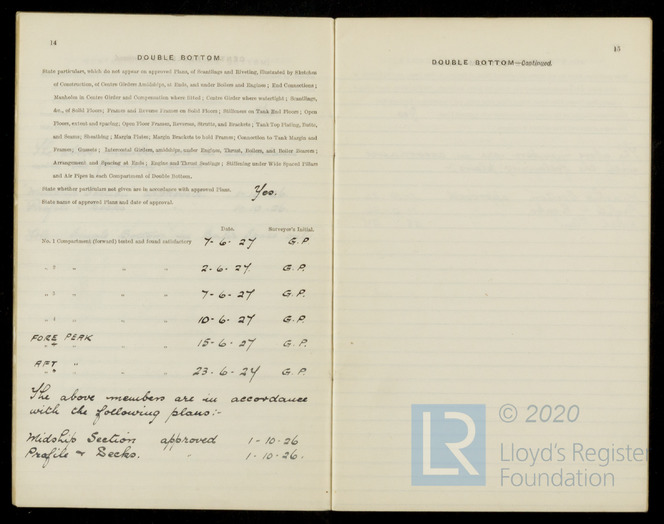 14
DOUBLE BOTTOM
State particulars, which do not appear on approved Plans, of Scantlings and Riveting, illustrated by Sketches
of Construction, of Centre Girders Amidships, at Ends, and under Boilers and Engines; End Connections;
Manholes in Centre Girder and Compensation where fitted; Centre Girder where watertight; Scantlings,
&c., of Solid Floors; Frames and Reverse Frames on Solid Floors; Stiffeners on Tank End Floors; Open
Floors, extent and spacing; Open Floor Frames, Reverses, Struts, and Brackets; Tank Top Plating, Butts,
and Seams; Sheathing; Margin Plates; Margin Brackets to hold Frames; Connection to Tank Margin and
Frames; Gussets; Intercostal Girders, amidships, under Engines, Thrust, Boilers, and Boiler Bearers;
Arrangement and Spacing at Ends; Engine and Thrust Seatings; Stiffening under Wide Spaced Pillars
and Air Pipes in each Compartment of Double Bottom.
State whether particulars not given are in accordance with approved Plans. Yes.
State name of approved Plans and date of approval.
Date. Surveyor's Initial.
No. 1 Compartment (forward) tested and found satisfactory 7-6-27 G.P
„ 2 „ „ „ 2-6-27 G.P.
„ 3 „ „ „ 7-6-27 G.P.
„ 4 „ „ „ 10-6-27 G.P.
FORE PEAK 15-6-27 G.P.
AFT „ 23-6-27 G.P.
The above members are in accordance
with the following plans:-
Midship Section approved 1-10-26
Profile & Decks. „ 1-10-26.
15
DOUBLE BOTTOM—Continued.
LR
© 2020
Lloyd's Register
Foundation